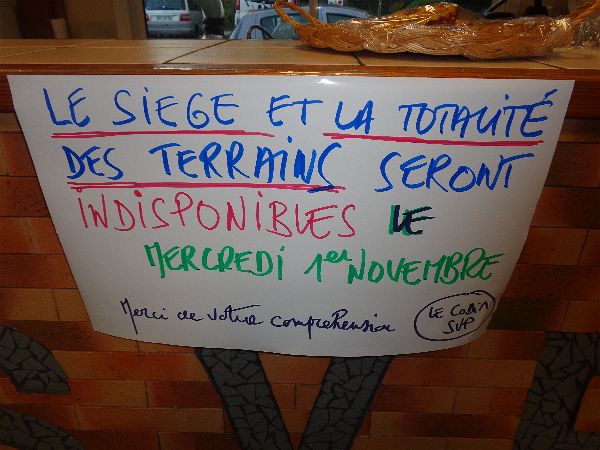 LE SIEGE ET LA TOTALITÉ
DES TERRAINS SERONT
INDISPONIBLES LE
MERCREDI 1er NOVEMBRE
Merci de votre compréhension
LE
SVP